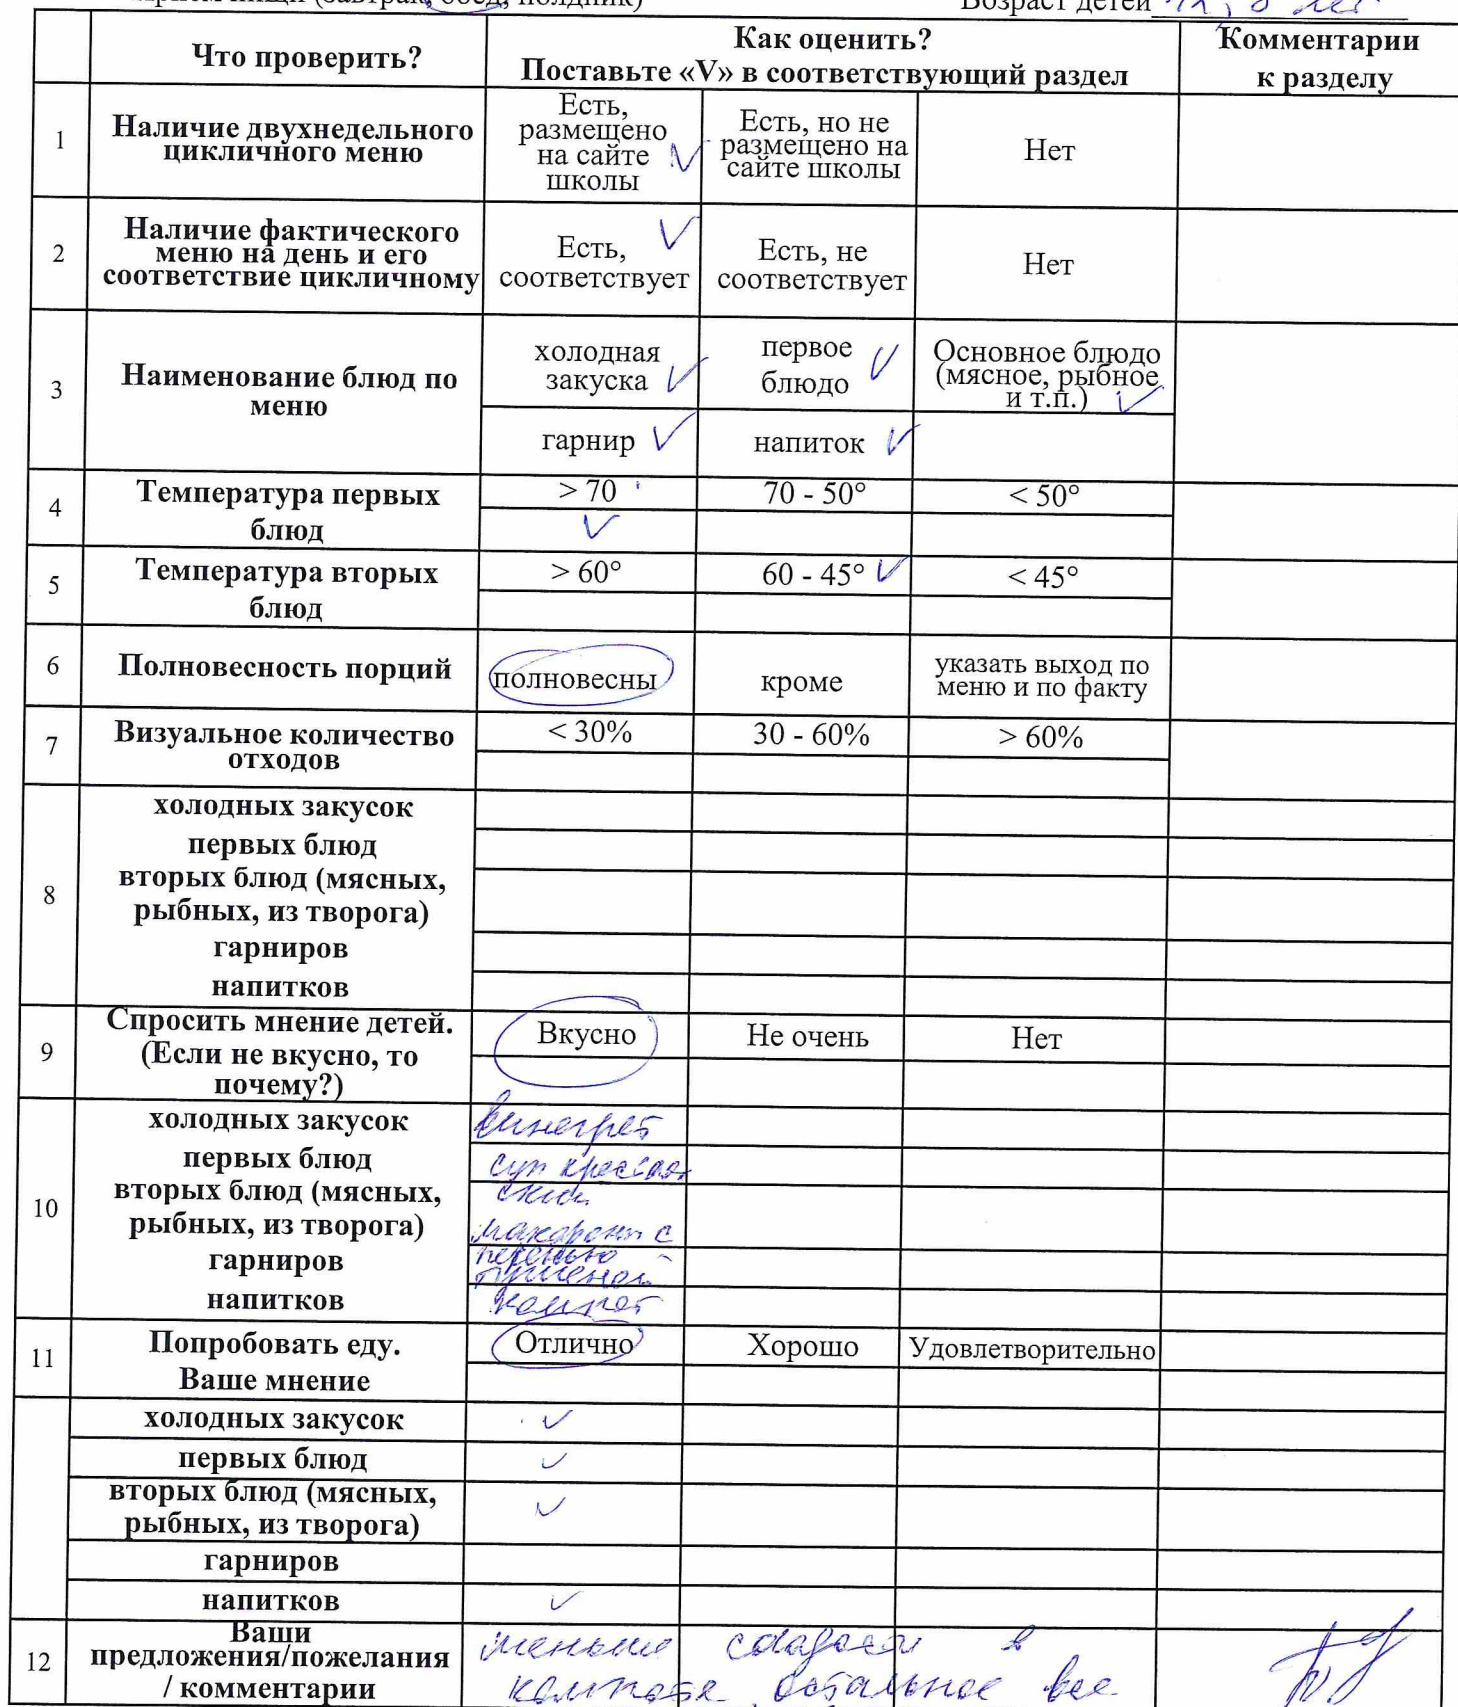 прием пищи (завтрак, обед, полдник) Возраст детей лет
Что проверить? Как оценить? Поставьте «V» в соответствующий раздел Комментарии к разделу
1 Наличие двухнедельного цикличного меню Есть, размещено на сайте школы V Есть, но не размещено на сайте школы Нет
2 Наличие фактического меню на день и его соответствие цикличному Есть, соответствует V Есть, не соответствует Нет
3 Наименование блюд по меню холодная закуска V первое блюдо V Основное блюдо (мясное, рыбное и т.п.) V
гарнир V напиток V
4 Температура первых блюд > 70 70 - 50° < 50°
V
5 Температура вторых блюд > 60° 60 - 45° V < 45°
6 Полновесность порций полновесны кроме указать выход по меню и по факту
7 Визуальное количество отходов < 30% 30 - 60% > 60%
8 холодных закусок
первых блюд
вторых блюд (мясных, рыбных, из творога)
гарниров
напитков
9 Спросить мнение детей. (Если не вкусно, то почему?) Вкусно Не очень Нет
10 холодных закусок винегрет
первых блюд суп крестьянский
вторых блюд (мясных, рыбных, из творога) макароны с
гарниров печенью тушеной
напитков компот
11 Попробовать еду. Ваше мнение Отлично Хорошо Удовлетворительно
холодных закусок V
первых блюд V
вторых блюд (мясных, рыбных, из творога) V
гарниров
напитков V
12 Ваши предложения/пожелания / комментарии меньше сладости в
компоте остальное все